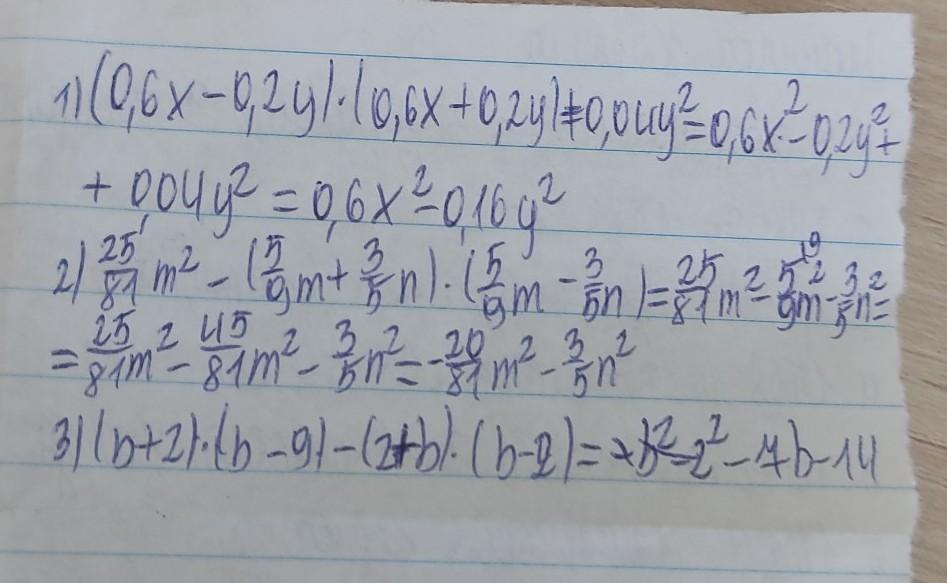 1) (0,6x-0,2y)·(0,6x+0,2y)+0,04y²=0,6x²-0,2y²+
+0,04y²=0,6x²-0,16y²
2) 25/81 m² - (5/9 m + 3/5 n)·(5/9 m - 3/5 n) = 25/81 m² - 5/9 m² - 3/5 n² =
= 25/81 m² - 45/81 m² - 3/5 n² = -20/81 m² - 3/5 n²
3) (b+2)·(b-9)-(2+b)·(b-2)= -7b-14